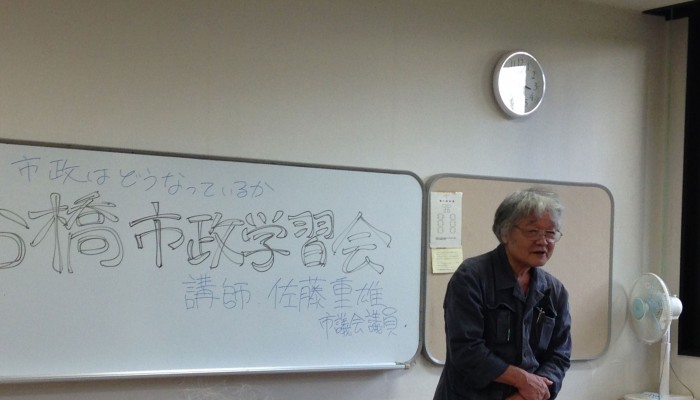 市政はどうなっているか
橋市政学習会
講師 佐藤重雄
市議会議員